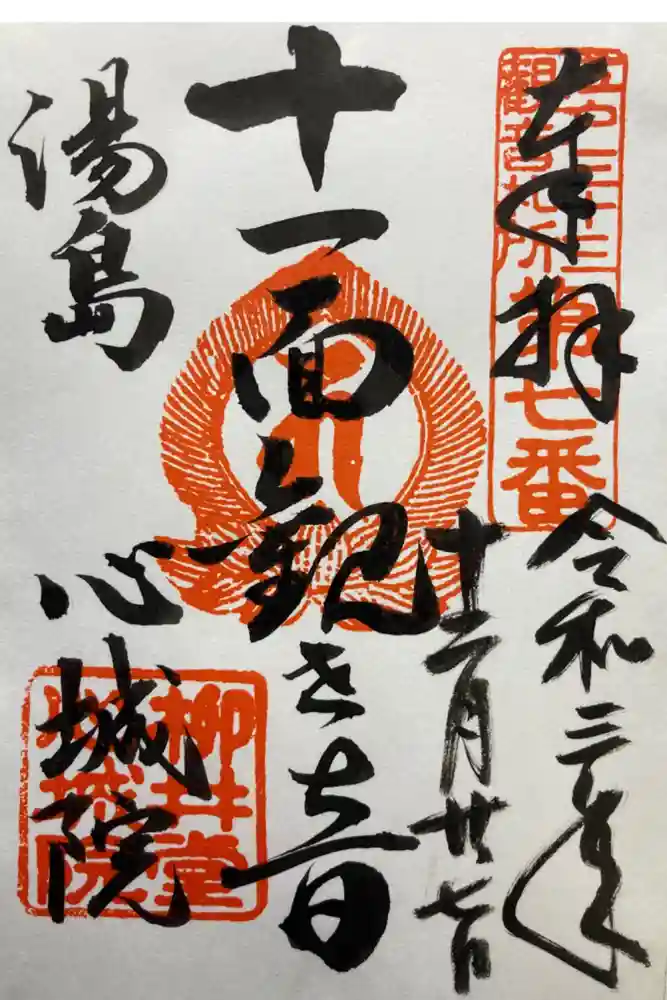 奉拝
江戸三十三
観音札所
第七番
令和三年
十二月廿七日
十一面観世音
湯島
心城院
柳井堂
心城院